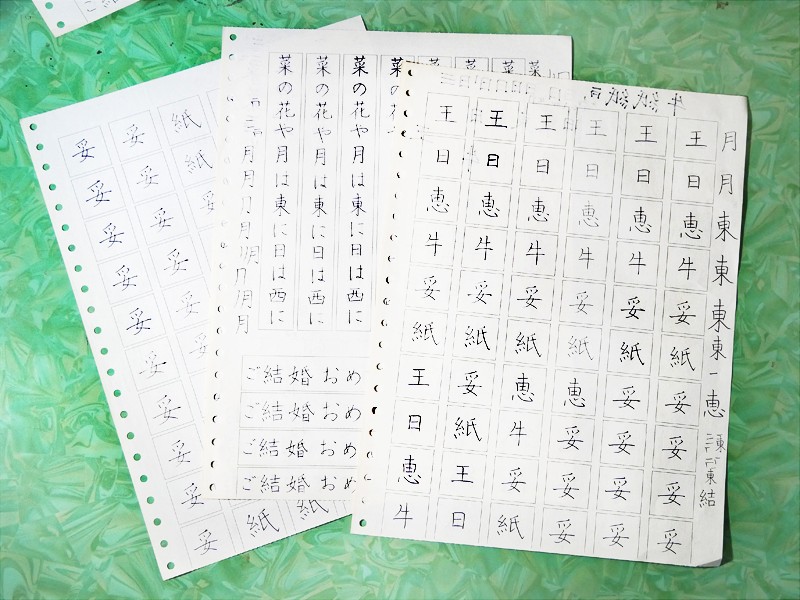 妥 妥 紙
妥 妥 紙
妥 妥
妥 妥
妥
妥
妥
妥
妥
妥 紙 紙
菜の花や月は東に日は西に
菜の花や月は東に日は西に
菜の花や月は東に日は西に
菜の花
菜
菜
菜
菜
ご結婚おめ
ご結婚おめ
ご結婚おめ
ご結婚おめ
王 王 王 王 王 王
日 日 日 日 日 日
恵 恵 恵 恵 恵 恵
牛 牛 牛 牛 牛 牛
妥 妥 妥 妥 妥 妥
紙 紙 紙 紙 紙 紙
王 妥 恵 恵 妥 妥
日 紙 牛 妥 妥 妥
恵 王 妥 妥 妥 妥
牛 日 紙 妥 妥 妥
月月東東東東一恵
結